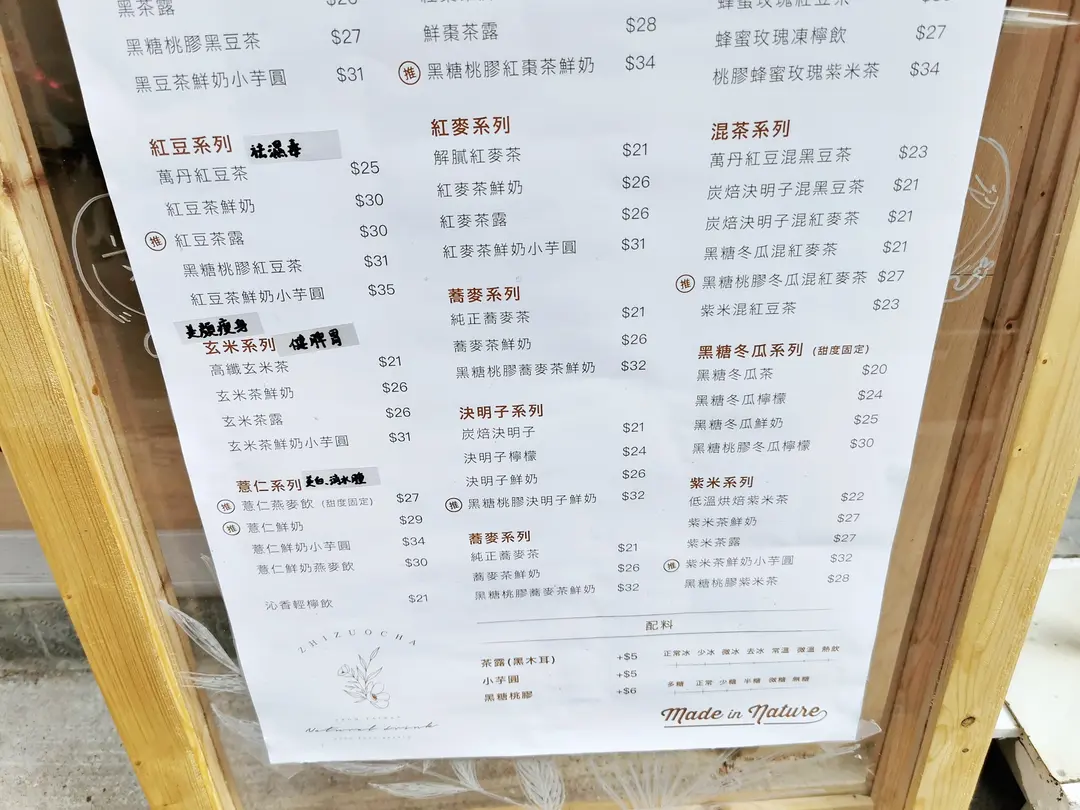 黑茶露
黑糖桃膠黑豆茶 $27
黑豆茶鮮奶小芋圓 $31
紅豆系列 祛濕毒
萬丹紅豆茶 $25
紅豆茶鮮奶 $30
推 紅豆茶露 $30
黑糖桃膠紅豆茶 $31
紅豆茶鮮奶小芋圓 $35
美顏瘦身
玄米系列 健脾胃
高纖玄米茶 $21
玄米茶鮮奶 $26
玄米茶露 $26
玄米茶鮮奶小芋圓 $31
薏仁系列 美白、消水腫
推 薏仁燕麥飲 (甜度固定) $27
推 薏仁鮮奶 $29
薏仁鮮奶小芋圓 $34
薏仁鮮奶燕麥飲 $30
沁香輕檸飲 $21
ZHIZUOCHA
Natural drink
鮮棗茶露 $28
推 黑糖桃膠紅棗茶鮮奶 $34
紅麥系列
解膩紅麥茶 $21
紅麥茶鮮奶 $26
紅麥茶露 $26
紅麥茶鮮奶小芋圓 $31
蕎麥系列
純正蕎麥茶 $21
蕎麥茶鮮奶 $26
黑糖桃膠蕎麥茶鮮奶 $32
決明子系列
炭焙決明子 $21
決明子檸檬 $24
決明子鮮奶 $26
推 黑糖桃膠決明子鮮奶 $32
蕎麥系列
純正蕎麥茶 $21
蕎麥茶鮮奶 $26
黑糖桃膠蕎麥茶鮮奶 $32
蜂蜜玫瑰紅豆茶
蜂蜜玫瑰凍檸飲 $27
桃膠蜂蜜玫瑰紫米茶 $34
混茶系列
萬丹紅豆混黑豆茶 $23
炭焙決明子混黑豆茶 $21
炭焙決明子混紅麥茶 $21
黑糖冬瓜混紅麥茶 $21
推 黑糖桃膠冬瓜混紅麥茶 $27
紫米混紅豆茶 $23
黑糖冬瓜系列 (甜度固定)
黑糖冬瓜茶 $20
黑糖冬瓜檸檬 $24
黑糖冬瓜鮮奶 $25
黑糖桃膠冬瓜檸檬 $30
紫米系列
低溫烘焙紫米茶 $22
紫米茶鮮奶 $27
紫米茶露 $27
推 紫米茶鮮奶小芋圓 $32
黑糖桃膠紫米茶 $28
配料
茶露(黑木耳) +$5
小芋圓 +$5
黑糖桃膠 +$6
正常冰 少冰 微冰 去冰 常溫 微溫 熱飲
多糖 正常 少糖 半糖 微糖 無糖
Made in Nature